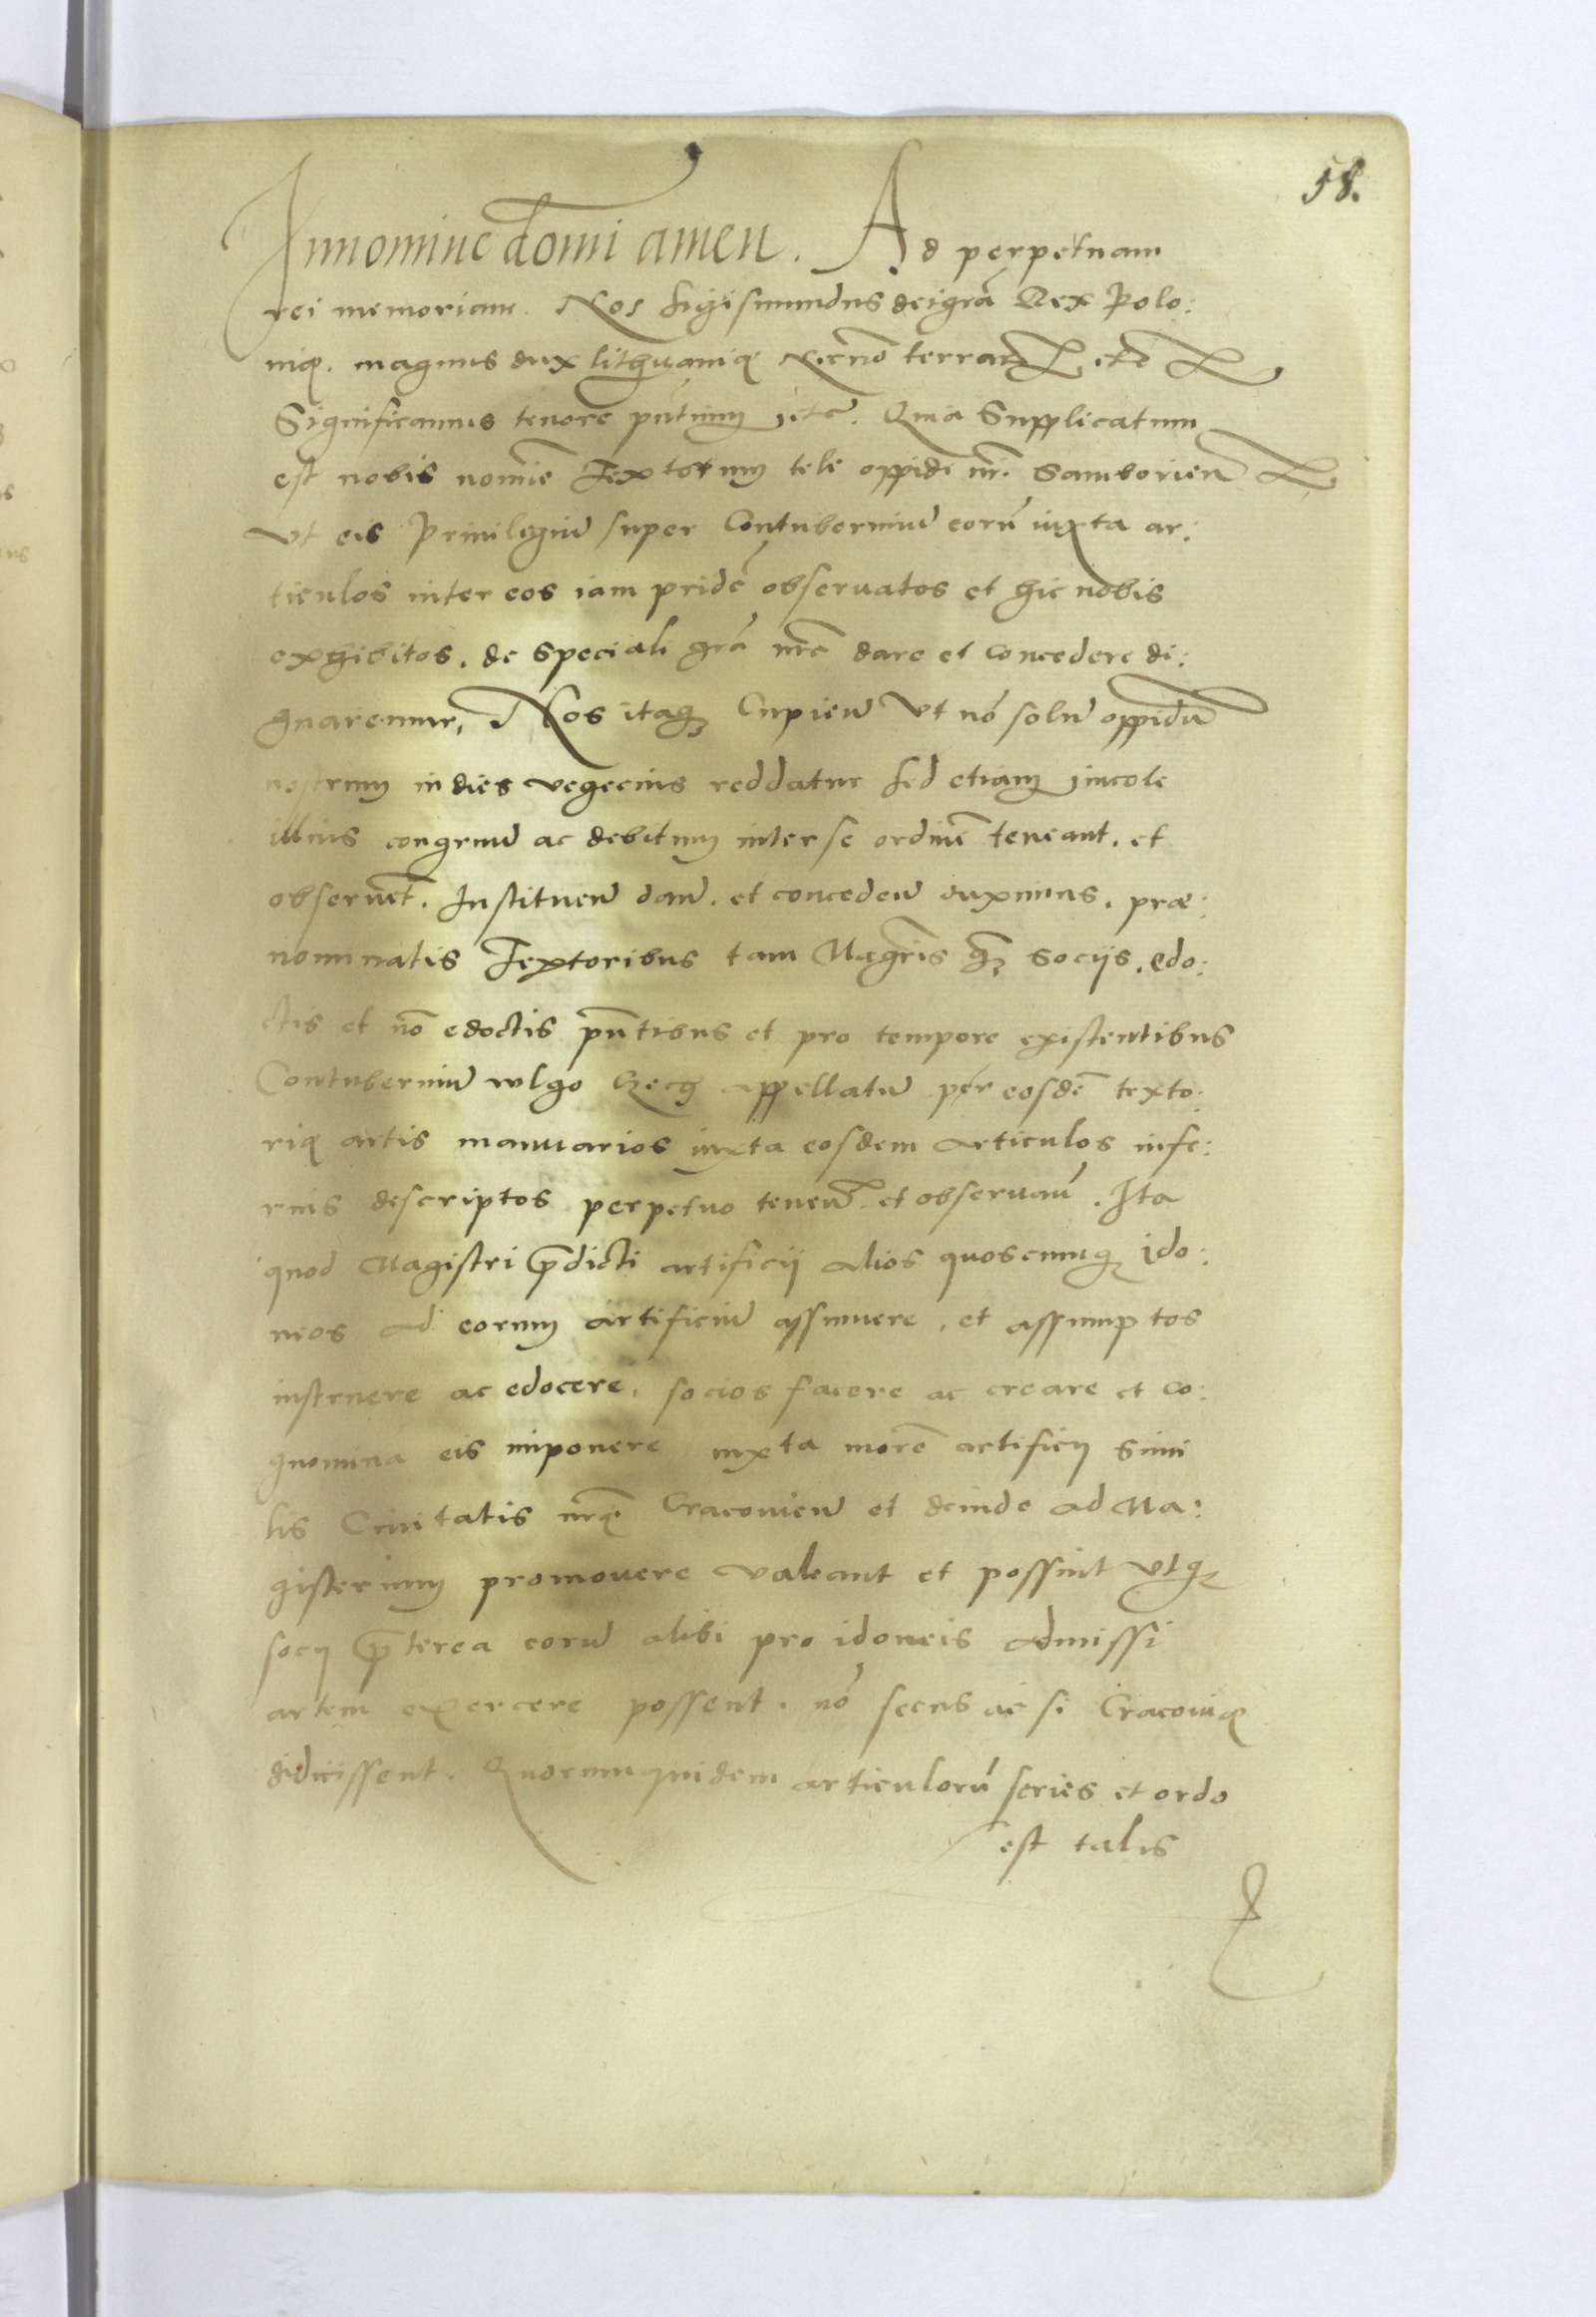 58.
Innomine domi amen. Ad perpetuam
rei memoriam. Nos Sigismundus dei grã Rex Polo:
nię. magnus dux lithuanię Necnõ terrarꝝ etc
Significamus tenore pñtium etc. Quia Supplicatum
est nobis nomie Textorum tele oppidi nri Samborien
vt eis Priuilegiũ super Contuberniũ eorũ iuxta ar:
ticulos inter eos iam pridẽ obseruatos et hic nobis
exhibitos. de speciali grã nrã dare et concedere di:
gnaremur, Nos itaqꝫ Cupien̄ vt nõ solũ oppidũ
nostrum in dies vegecius reddatur sed etiam incole
illius congruũ ac debitum inter se ordinẽ teneant. et
obseruẽt. Instituen̄ dan̄. et conceden̄ duximus. præ:
nominatis Textoribus tam Magr̃is qꝫ socijs. edo:
ctis et nõ edoctis pñtibus et pro tempore existentibus
Contuberniũ wlgo Czech appellatũ per eosdẽ texto:
rię artis manuarios iuxta eosdem articulos infe:
rius descriptos perpetuo tenen̄. et obseruan̄. Ita
quod Magistri p̃dicti artificij alios quoscunqꝫ ido:
neos ad eorum artificiũ assumere. et assumptos
instruere ac edocere. socios facere ac creare et co:
gnomina eis imponere iuxta morẽ artificij simi
lis Ciuitatis nrę Cracouien̄ et deinde ad Ma:
gisterium promouere valeant et possint vtqꝫ
socij p̃terea eorũ alibi pro idoneis admissi
artem exercere possent. nõ secus ac si Cracouię
didicissent. Quorum quidem articulorũ series et ordo
est talis